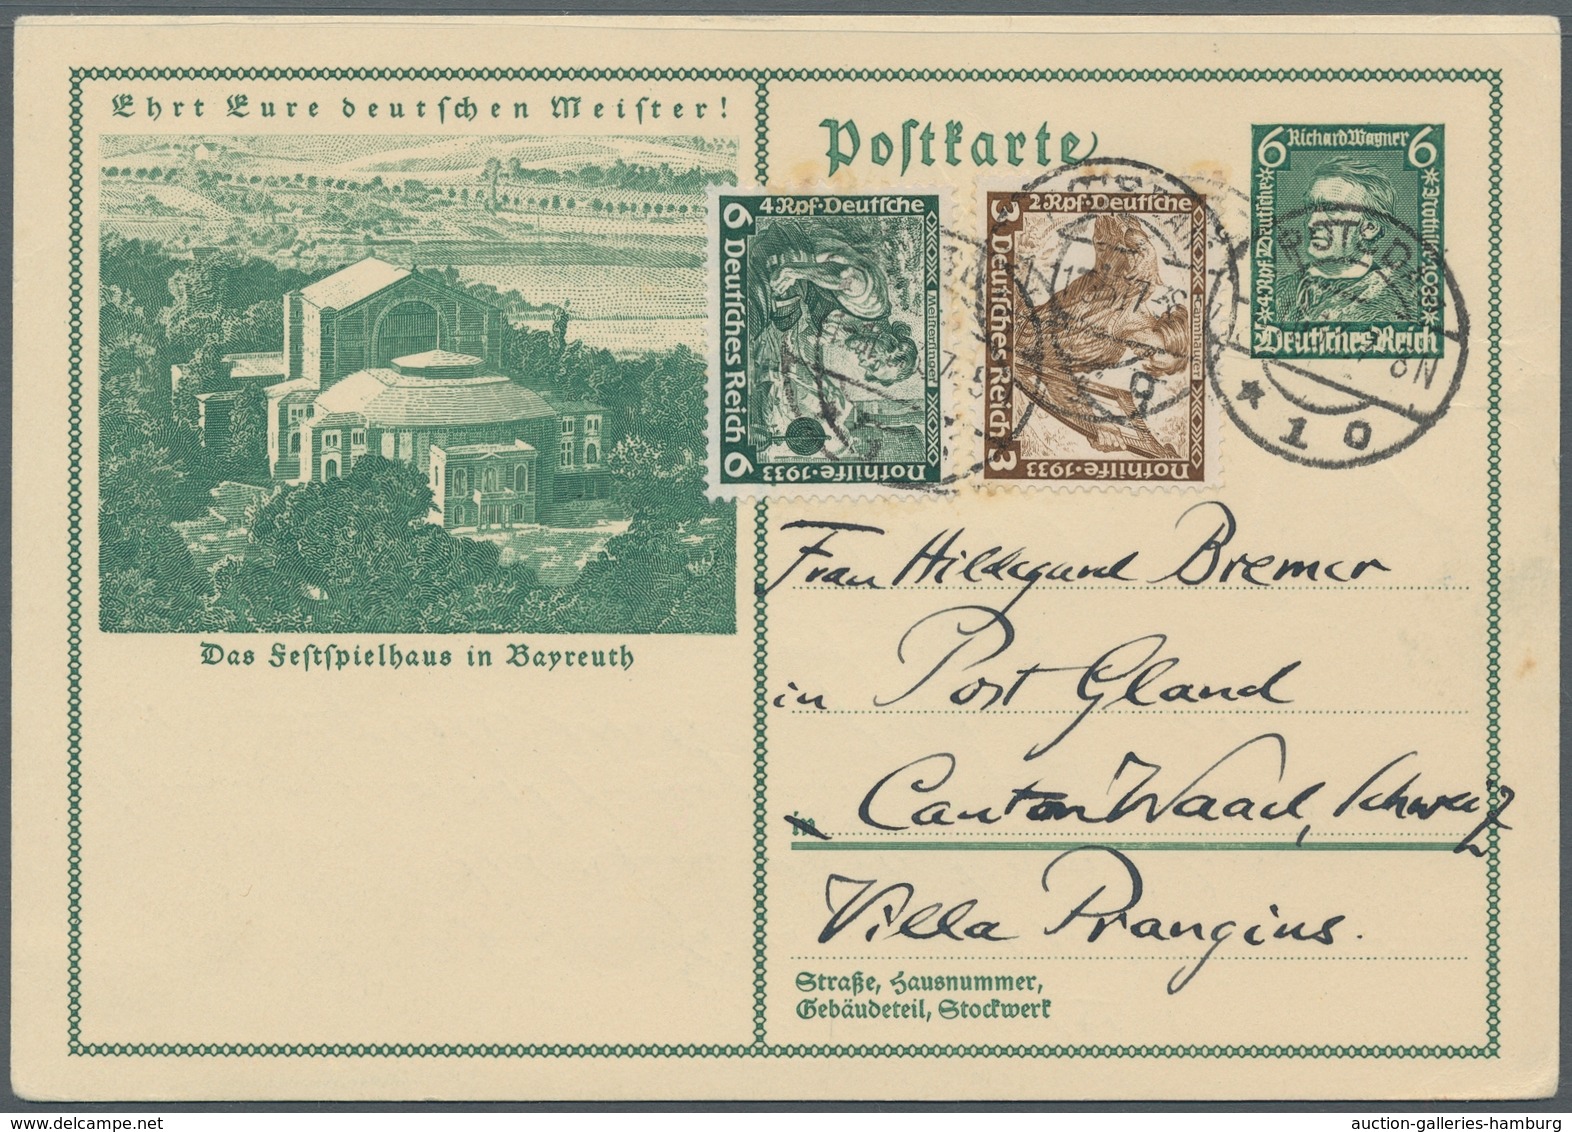 Ehrt Eure deutſchen Meiſter!
Das Feſtſpielhaus in Bayreuth
Poſtkarte
6 Richard Wagner 6
4 Rpf Deutſche
Nothilfe·1933
Deutſches Reich
4Rpf·Deutſche
6 Deutſches Reich 6
Meiſterſinger
Nothilfe·1933
2Rpf·Deutſche
3 Deutſches Reich 3
Tannhäuser
Nothilfe·1933
POTSDAM
8N
* 1 0
Frau Hildegund Bremer
in Post Gland
in Canton Waad, Schweiz
Villa Prangins.
Straße, Hausnummer,
Gebäudeteil, Stockwerk
auction-galleries-hamburg